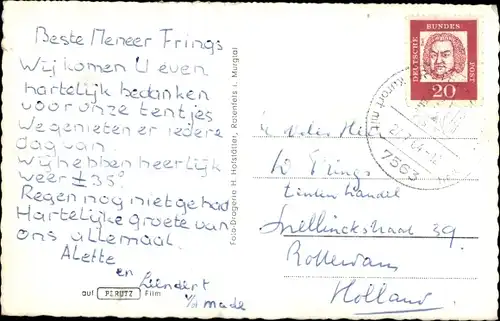 Beste Meneer Frings
Wij komen U even
hartelijk bedanken
voor onze tentjes
We genieten er iedere
dag van.
Wij hebben heerlijk
weer ± 35°
Regen nog niet gehad
Hartelijke groete van
ons allemaal.
Alette
en
auf PERUTZ Film
Foto-Drogerie H. Hofstätter, Rotenfels i. Murgtal
DEUTSCHE BUNDES POST
20
Kurort mit
7563
W Frings
tinten handel
Snellinckstraat 39
Rotterdam
Holland